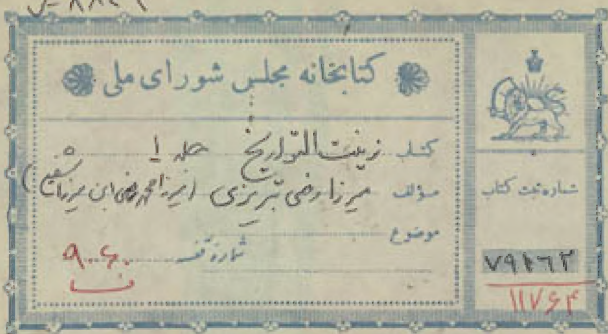 کتابخانه مجلس شورای ملی
کتاب زینت التواریخ جلد ۱
مؤلف میرزا رضی تبریزی (میرزا محمد رضی ابن میرزا شفیع)
موضوع
شماره قفسه ۹۰۰۶
ف
شماره ثبت کتاب
۷۹۱۶۲
۱۱۷۶۴